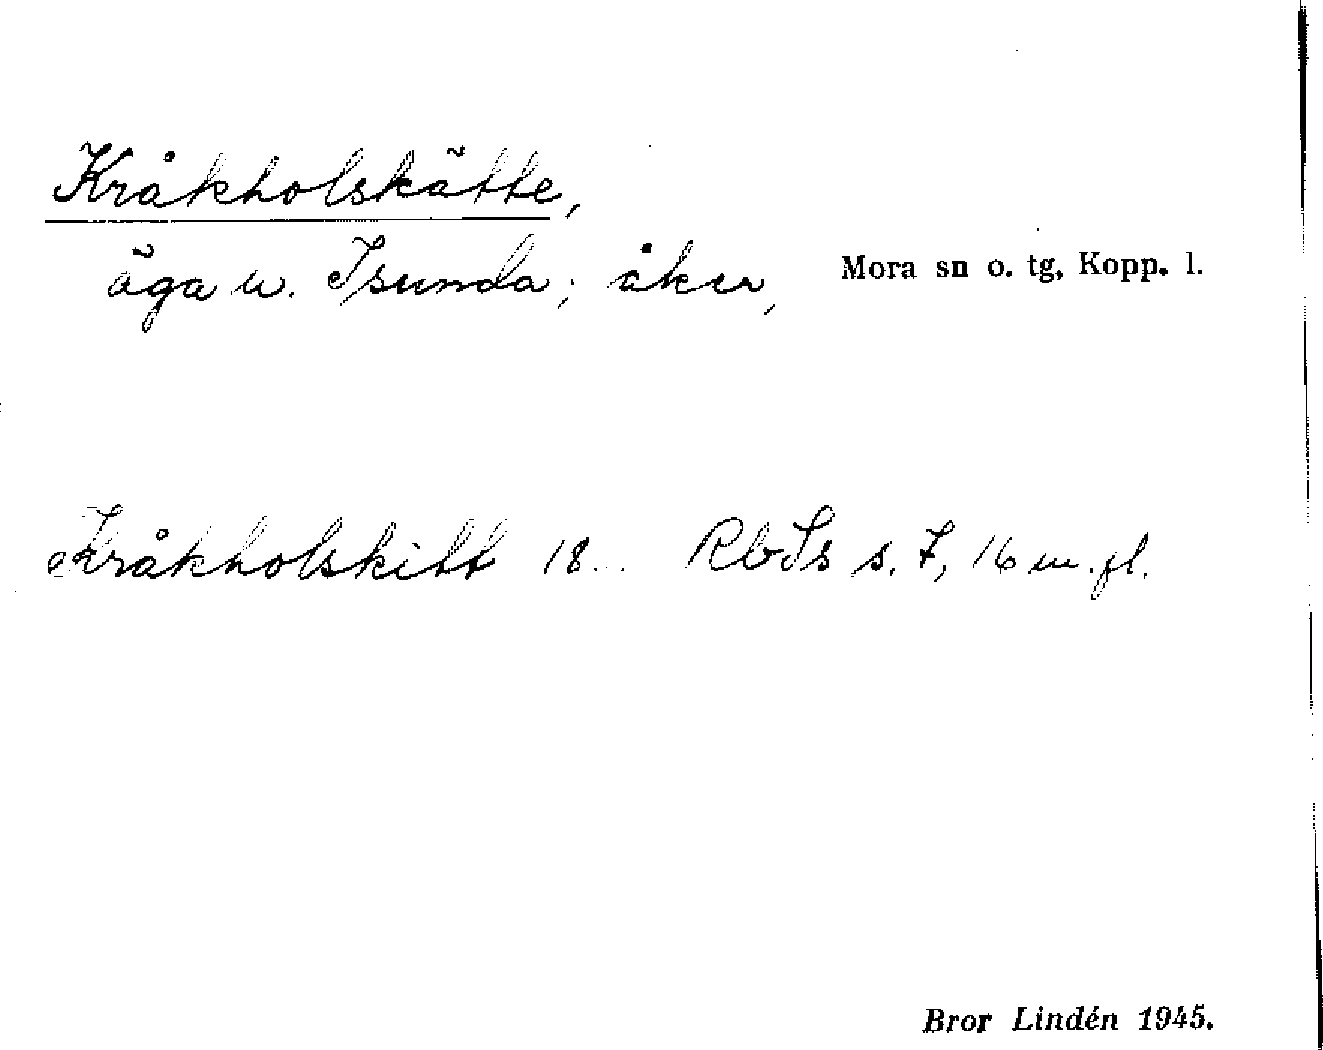 Kråkholskätte,
äga w. Isunda; åker,
Mora sn o. tg, Kopp. l.
Kråkholskitt 18... RbSs s. 7, 16 m. fl.
Bror Lindén 1945.